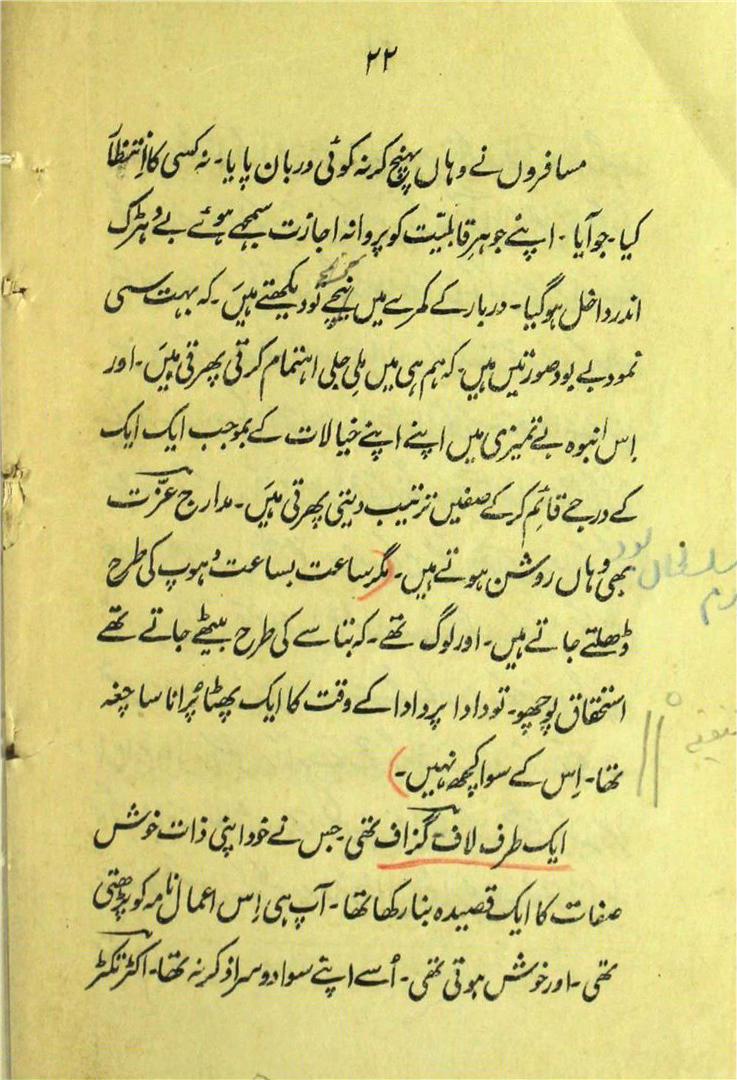 ۲۲
مسافروں نے وہاں پہنچ کر نہ کوئی دربان پایا۔ نہ کسی کا اِنتظآ
کیا۔ جو آیا۔ اپنے جوہرِ قابلیّت کو پروانہ اجازت سمجھے ہوئے بے دھڑک
اندر داخل ہو گیا۔ دربار کے کمرے میں پہنچے تو دیکھتے ہیں۔ کہ بہت سی
نمود بے بود صورتیں ہیں۔ کہ ہم ہی میں مِلی جلی اہتمام کرتی پھرتی ہیں۔ اور
اِس انبوہ بے تمیزی میں اپنے اپنے خیالات کے بموجب ایک ایک
کے درجے قائم کر کے صفیں ترتیب دیتی پھرتی ہیں۔ مدارج عزّت
بھی وہاں روشن ہوتے ہیں۔ مگر ساعت بساعت دھوپ کی طرح
ڈھلتے جاتے ہیں۔ اور لوگ تھے۔ کہ بتاسے کی طرح بیٹھے جاتے تھے
استحقاق پوچھو۔ تو دادا پردادا کے وقت کا ایک پھٹا پُرانا سا چغہ
تھا۔ اِس کے سوا کچھ نہیں۔
ایک طرف لاف گزاف تھی جس نے خود اپنی ذات خوش
صفات کا ایک قصیدہ بنا رکھا تھا۔ آپ ہی اِس اعمال نامہ کو پڑھتی
تھی۔ اور خوش ہوتی تھی۔ اُسے اپنے سوا دوسرا ذکر نہ تھا۔ اکڑ تکڑ